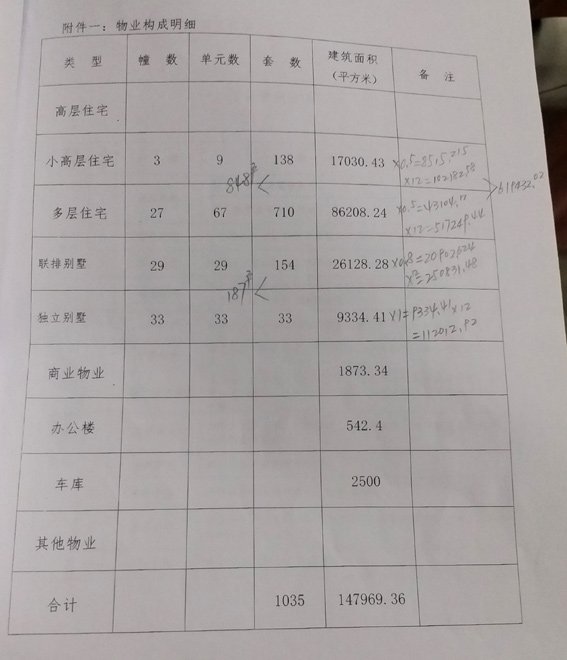 附件一：物业构成明细
类 型 幢 数 单元数 套 数 建筑面积（平方米） 备 注
高层住宅
小高层住宅 3 9 138 17030.43 ×0.5=8515.215
×12=102182.58
848户
619432.02
多层住宅 27 67 710 86208.24 ×0.5=43104.12
×12=517249.44
联排别墅 29 29 154 26128.28 ×0.8=20902.624
×12=250831.48
187户
独立别墅 33 33 33 9334.41 ×1=9334.41×12
=112012.92
商业物业 1873.34
办公楼 542.4
车库 2500
其他物业
合计 1035 147969.36